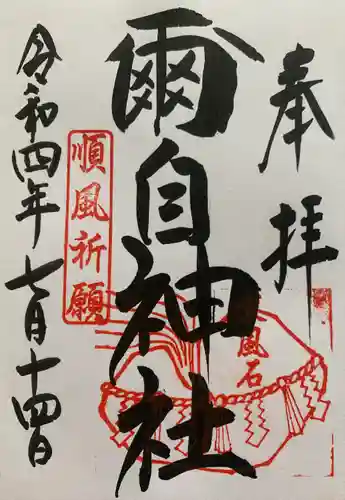 奉拝
爾自神社
順風祈願
風石
令和四年七月十四日